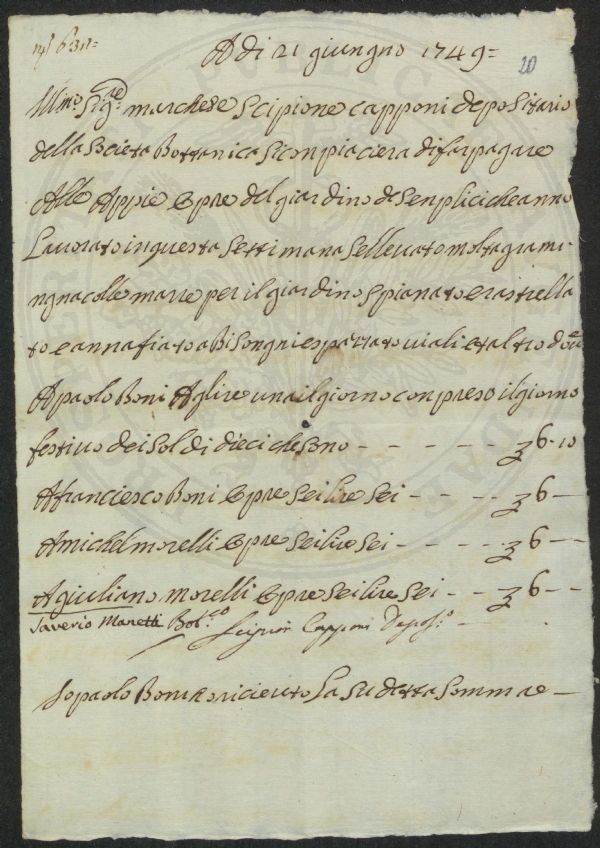 A di 21 giungno 1749=
20
Illmo Sige marchese Scipione capponi depositario
della Societa Bottanica Si conpiaciera di far pagare
Alle Appie opre del giardino de Senplici che anno
Lavorato in questa Settimana Sellevato molta grami
ngna colle marre per il giardino Spianato e rastrella
to e annafiato a Bisongni e spazzato viali et altro dove
A paolo Boni A lire una il giorno conpreso il giorno
festivo dei Soldi dieci che Sono - - - - - 6-10
A franciesco Boni opre Sei lire Sei - - - - 6 -
A michel morelli opre Sei lire Sei - - - - 6 -
A giuliano morelli opre Sei lire Sei - - - 6 - -
Saverio Manetti Botco
Scipion Capponi Deposo
Io paolo Boni o riceuto La Su detta Somma e -